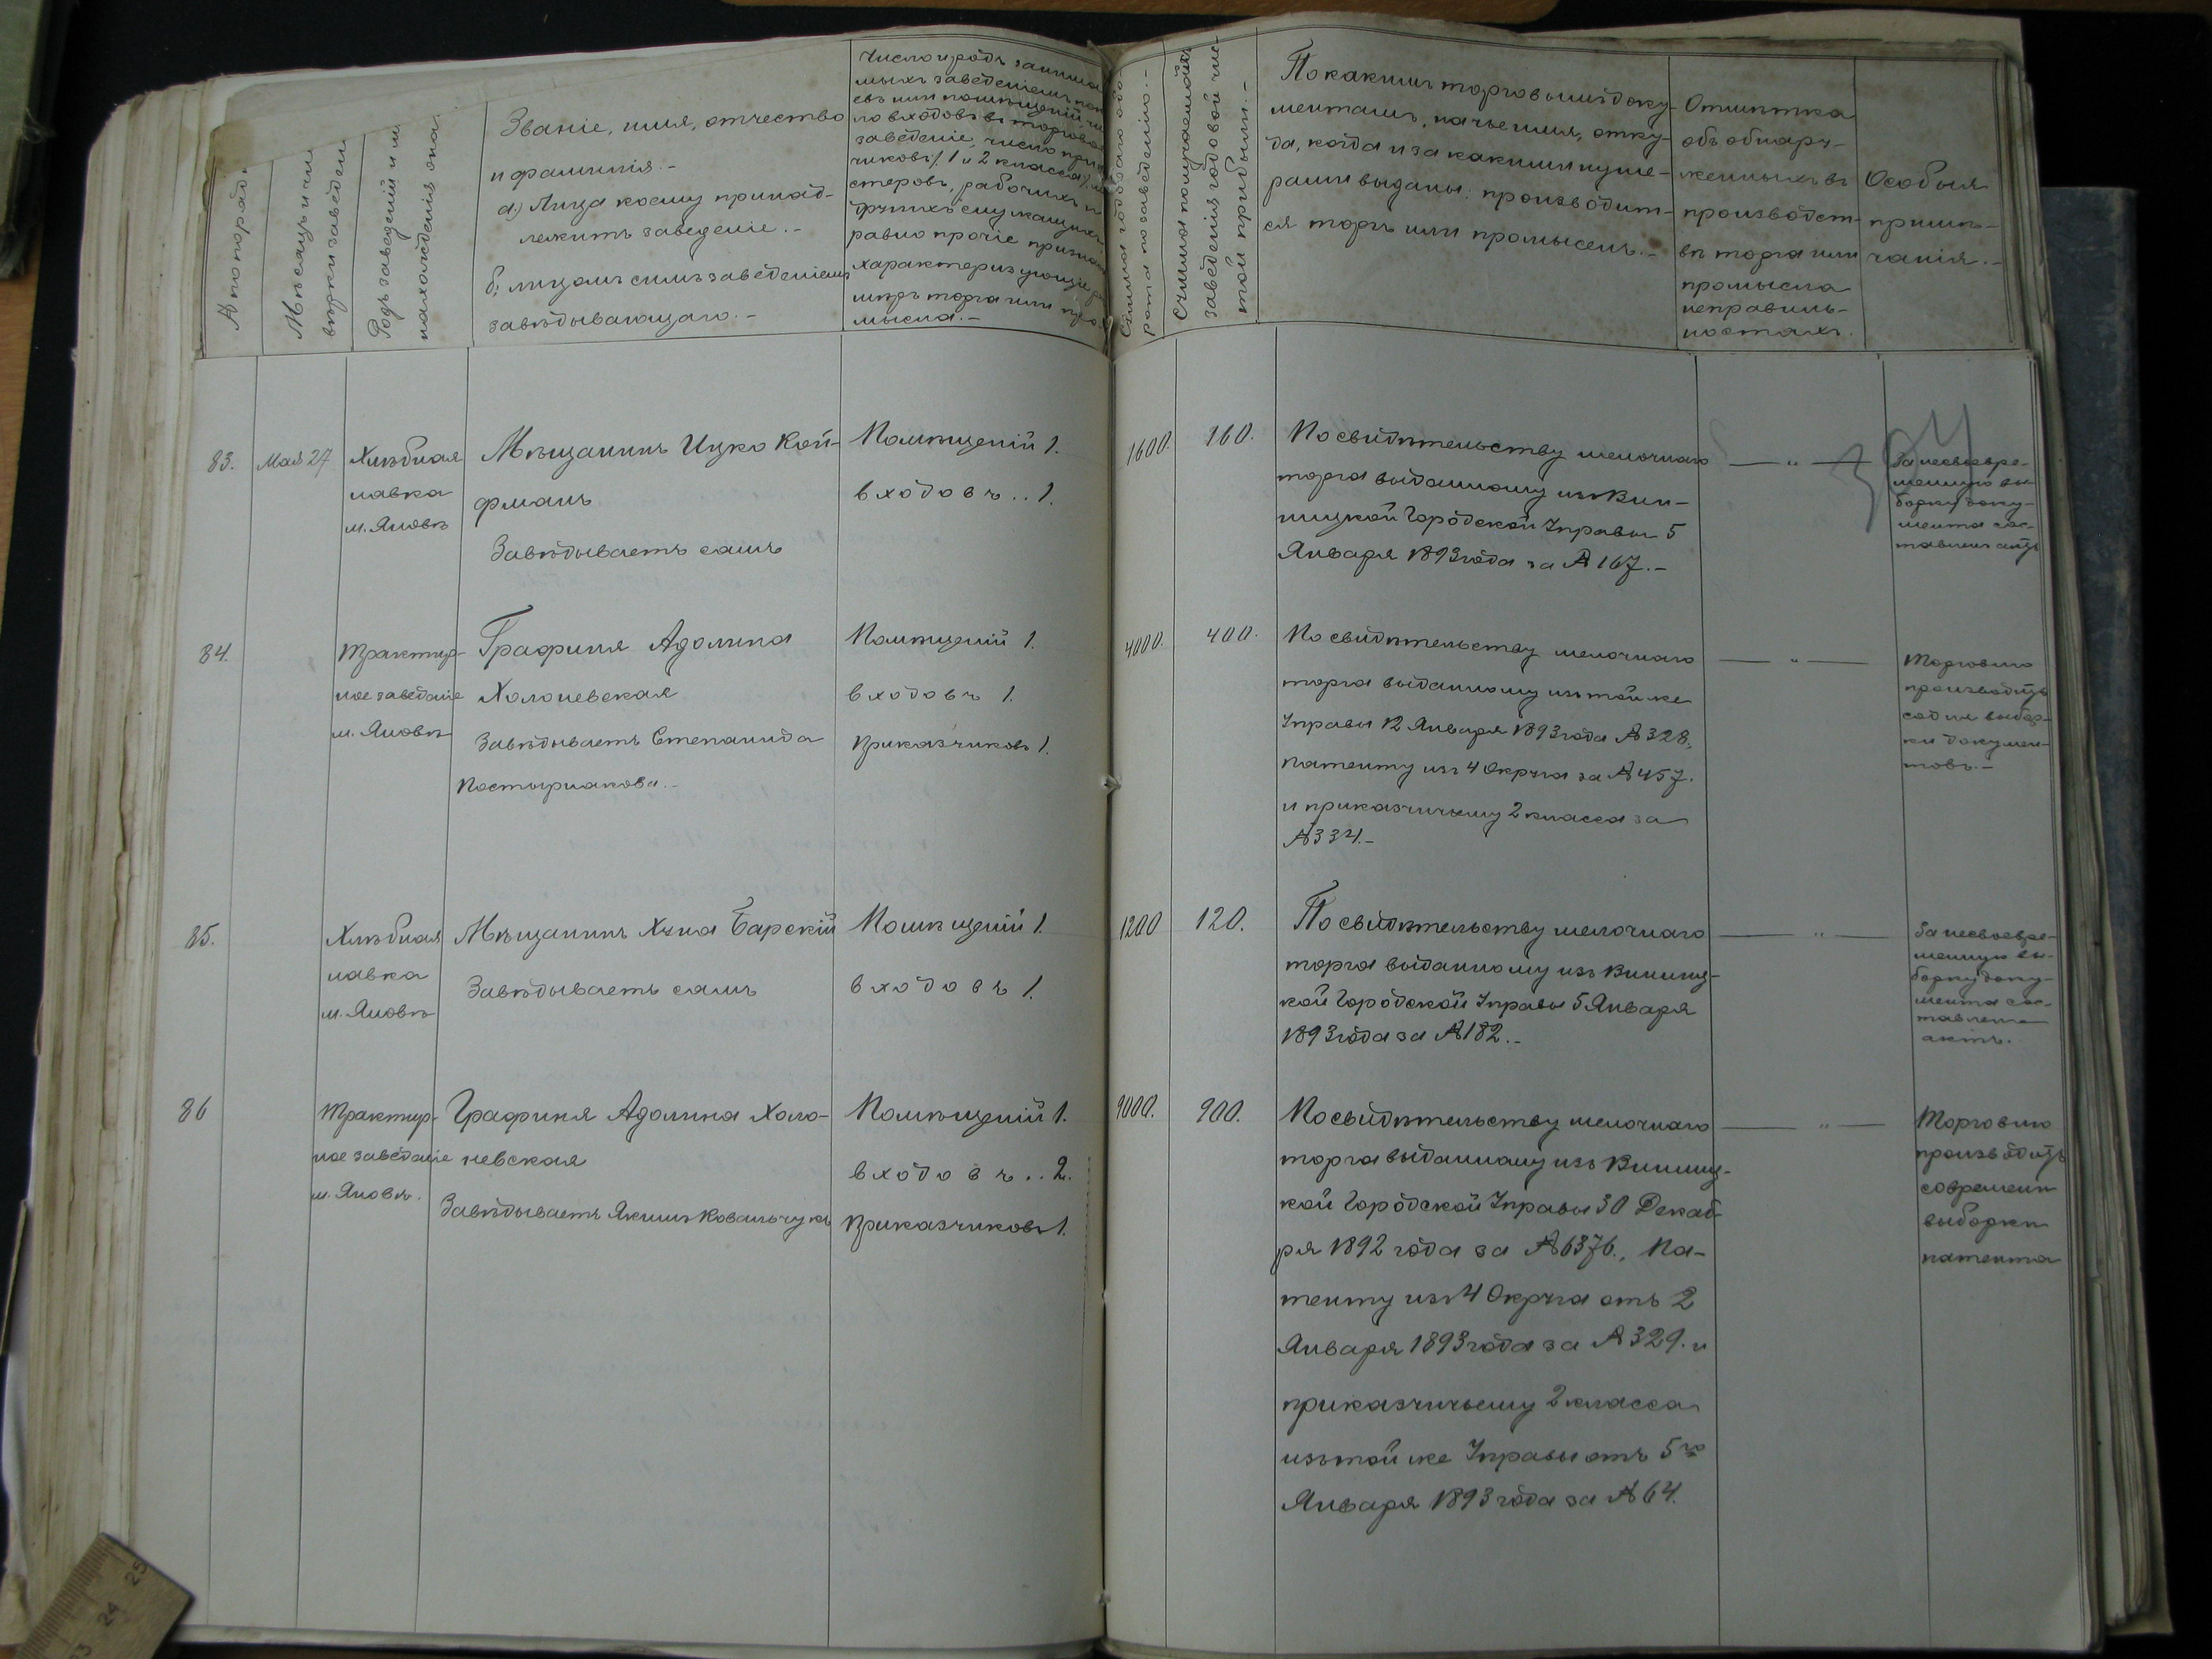 № по поряд.
Мѣсяцъ и чи
вѣрки заведен
Родъ заведеній и м
нахожденія она.
Званіе, имя, отчество
и фамилія.-
а) Лица коему принад-
лежитъ заведеніе.-
б) лицомъ симъ заведеніемъ
завѣдывающаго.-
Число и родъ занима
мыхъ заведеніемъ
евъ или помѣщеній
ло входовъ въ торгово
заведеніе, число при
чиковъ (1 и 2 класса)
стеровъ, рабочихъ и
другихъ служащихъ
равно прочіе
характеризующіе
мѣръ торга или про
мысла.-
рота по заведенію.-
Сумма получаемой
заведенія годовой чис-
той прибыли.-
По какимъ торговымъ доку-
ментамъ, на чье имя, отку-
да, когда и за какими нуме-
рами выданы: производит-
ся торгъ или промыселъ.-
Отмѣтка
объ обнару-
женныхъ въ
производст-
вѣ торга или
промысла
неправиль-
ностяхъ.
Особыя
примѣ-
чанія.-
83.
Мая 27
Хлѣбная
лавка
м. Яновѣ
Мѣщанинъ Ицко Кой-
фманъ
Завѣдываетъ самъ
Помѣщеній 1.
входовъ.. 1.
1600.
160.
По свидѣтельству мелочнаго
торга выданному изъ Вин-
ницкой Городской Управы 5
Января 1893 года за № 167.-
— „ —
За несвоевре-
менную вы-
борку доку-
мента сос-
тавленъ актъ
84.
Трактир-
ное заведеніе
м. Яновѣ
Графиня Адолина
Холоневская
Завѣдываетъ Степанида
Постырнакова.-
Помѣщеній 1.
входовъ 1.
Приказчиковъ 1.
4000.
400.
По свидѣтельству мелочнаго
торга выданному изъ той же
Управы 12 Января 1893 года № 328,
патенту изъ 4 Округа за № 457.
и приказчичьему 2 класса за
№ 334.-
— „ —
Торговлю
производитъ
со дня выбор-
ки докумен-
товъ.-
85.
Хлѣбная
лавка
м. Яновѣ
Мѣщанинъ Хуна Барскій
Завѣдываетъ самъ
Помѣщеній 1.
входовъ 1.
1200
120.
По свидѣтельству мелочнаго
торга выданному изъ Винниц-
кой Городской Управы 5 Января
1893 года за № 182.-
— „ —
За несвоевре-
менную вы-
борку доку-
мента сос-
тавленъ
актъ.
86
Трактир-
ное заведеніе
м. Яновѣ.
Графиня Адолина Холо-
невская
Завѣдываетъ Якимъ Ковальчукъ
Помѣщеній 1.
входовъ.. 2.
Приказчиковъ 1.
9000.
900.
По свидѣтельству мелочнаго
торга выданному изъ Винниц-
кой Городской Управы 30 Декаб-
ря 1892 года за № 6376., Па-
тенту изъ 4 Округа отъ 2
Января 1893 года за № 329. и
приказчичьему 2 класса
изъ той же Управы отъ 5го
Января 1893 года за № 64.
— „ —
Торговлю
производитъ
со времени
выборки
патента
25
24